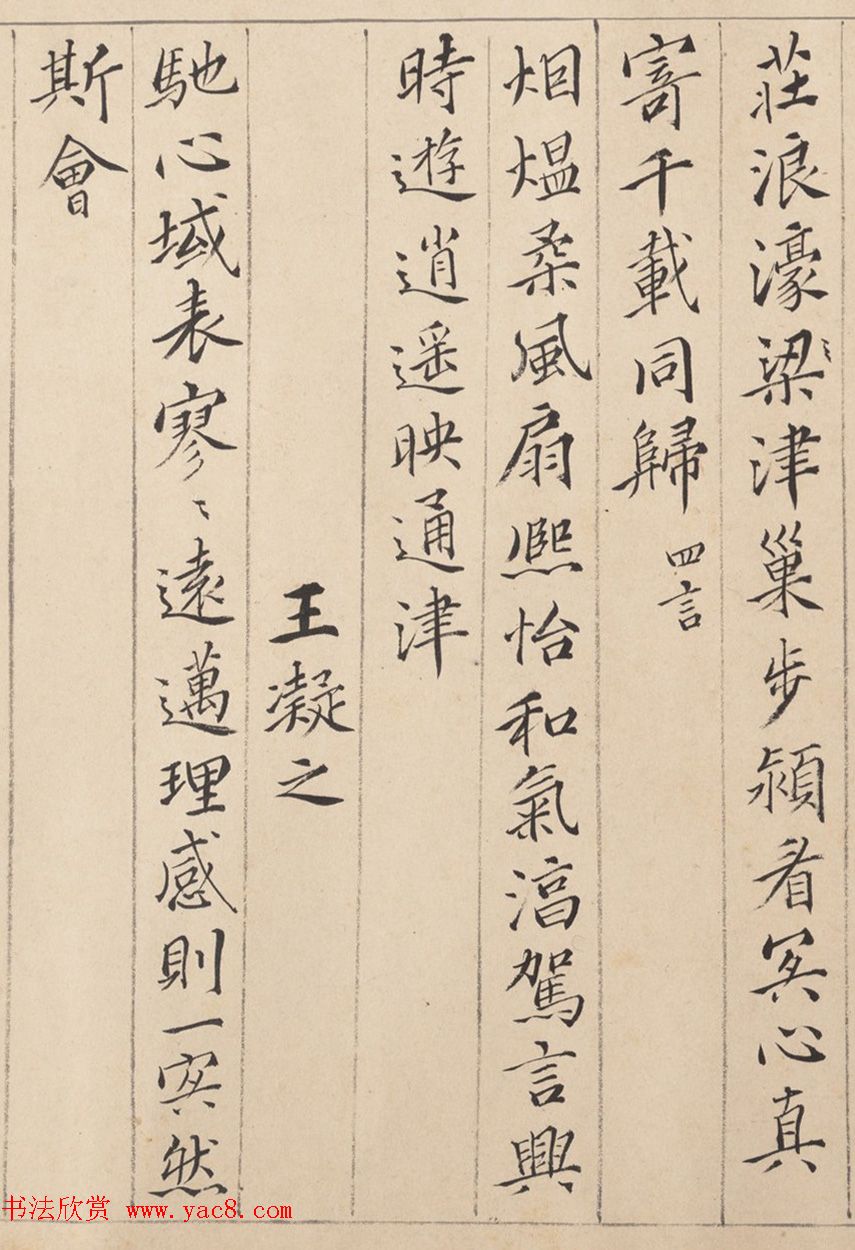 莊浪濠梁津巢步潁看冥心真
寄千載同歸 四言
烟熅柔風扇熙怡和氣淳駕言興
時遊逍遥映通津
王凝之
馳心域表寥〻遠邁理感則一冥然
斯會
书法欣赏 www.yac8.com